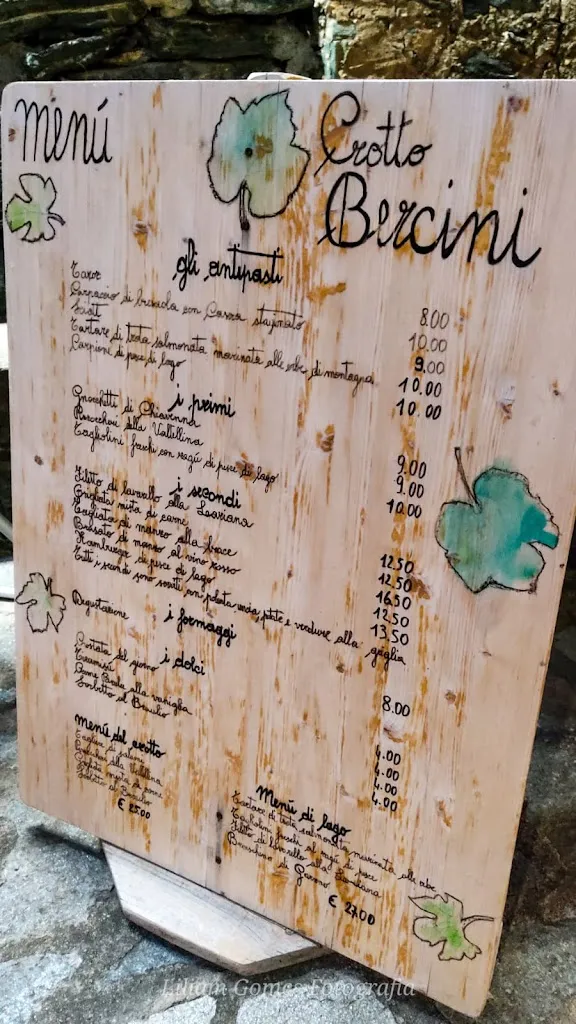 menú
Crotto
Bercini
gli antipasti
Carpaccio di bresaola con Casera stagionato
Tartare di trota salmonata marinata alle erbe di montagna
Carpione di pesce di lago
8.00
10.00
9.00
10.00
10.00
i primi
Gnocchetti di Chiavenna
Pizzoccheri della Valtellina
Tagliolini freschi con ragú di pesce di lago
9.00
9.00
10.00
i secondi
Filetto di lavarello alla Lariana
Grigliata mista di carne
Tagliata di manzo alla brace
Brasato di manzo al vino rosso
Hamburger di pesce di lago
Tutti i secondi sono serviti con polenta uncia, patate e verdure alla griglia
12.50
12.50
16.50
12.50
13.50
i formaggi
Degustazione
8.00
i dolci
Crostata del giorno
Tiramisú
Panna Cotta alla vaniglia
Sorbetto al Braulio
4.00
4.00
4.00
4.00
menú del crotto
Tagliere di salumi
Pizzoccheri alla Valtellina
Grigliata mista di carne
Sorbetto al Braulio
€ 25.00
Menú di lago
Tartare di trota salmonata marinata alle erbe
Tagliolini freschi al ragú di pesce
Filetto di lavarello alla Lariana
€ 27.00
Liliam Gomes Fotografia